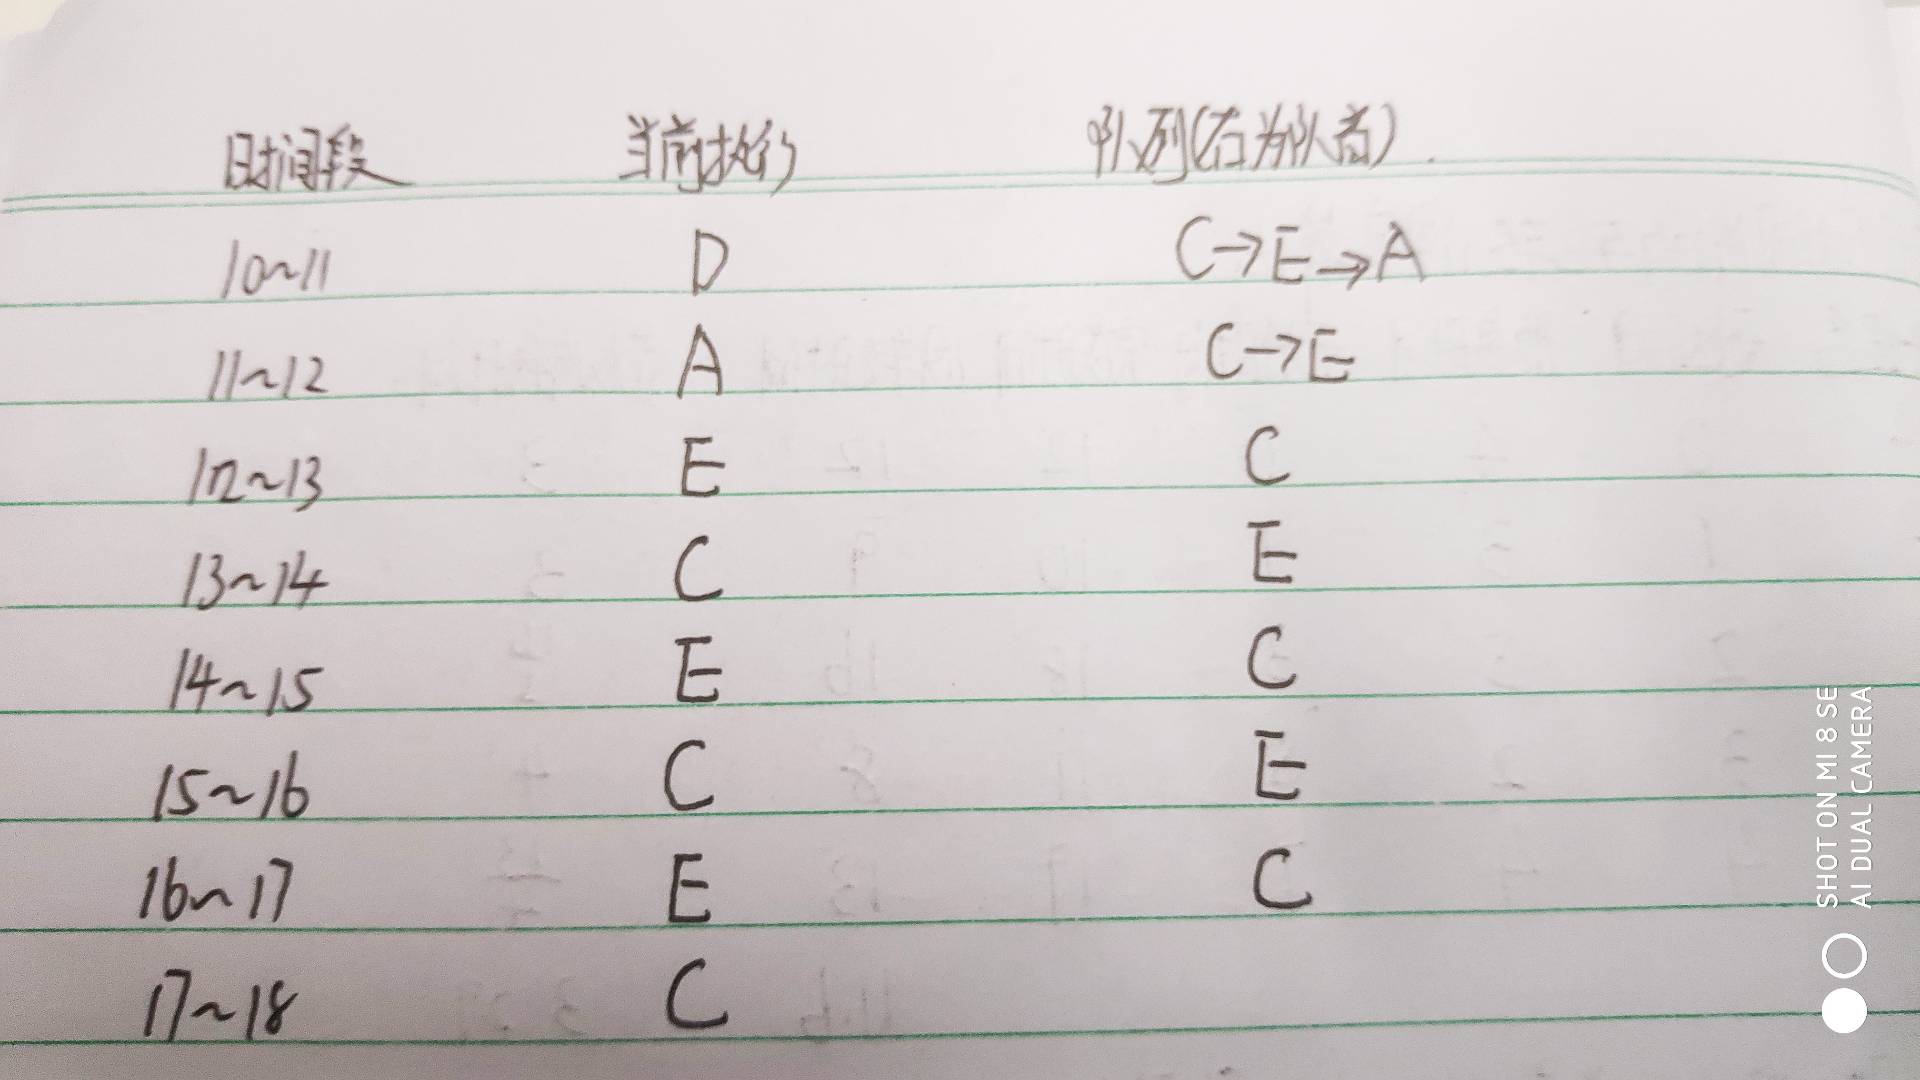 时间段 当前执行 队列(右为队首)
10~11 D C→E→A
11~12 A C→E
12~13 E C
13~14 C E
14~15 E C
15~16 C E
16~17 E C
17~18 C
SHOT ON MI 8 SE
AI DUAL CAMERA